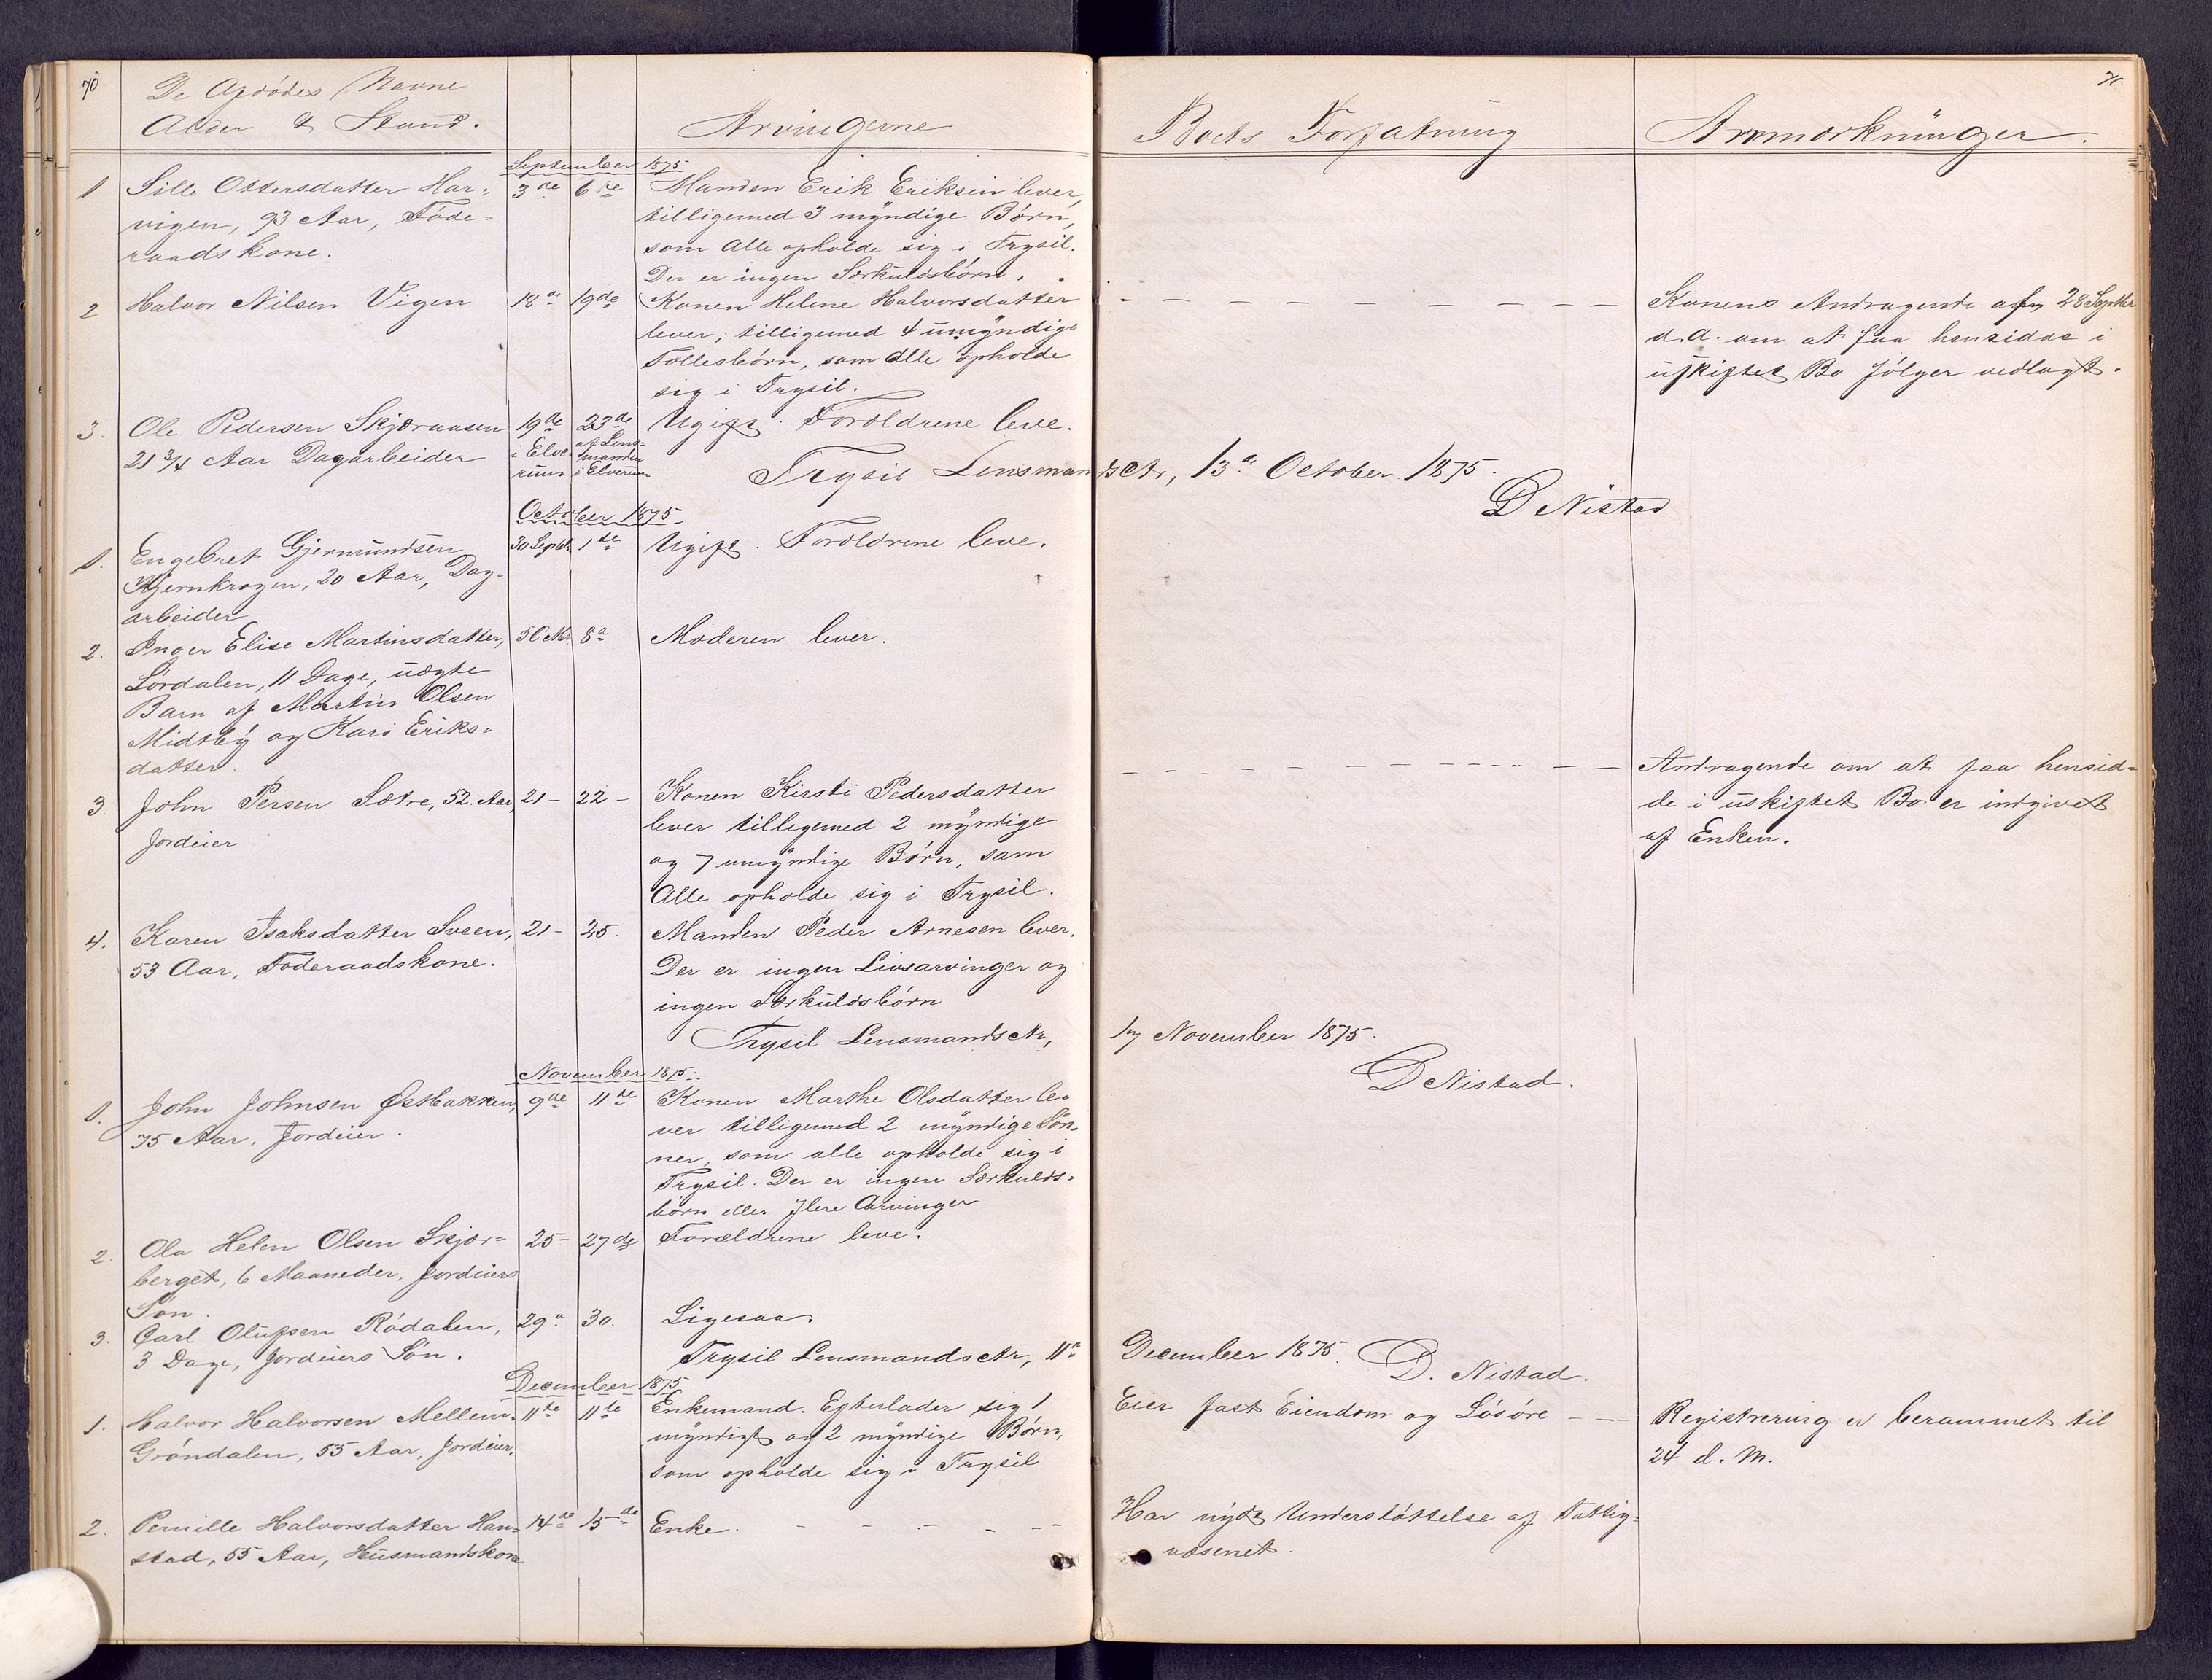 70
De Afdödes Navne
Alder & Stand.
Arvingerne
September 1875
1 Sille Ottersdatter Har-
vigen, 93 Aar, Föde-
raadskone.
3de 6te
Manden Erik Eriksen lever,
tilligemed 3 myndige Börn,
som Alle opholde sig i Trysil.
Der er ingen Særkuldsbörn.
2 Halvor Nilsen Vigen
18de 19de
Konen Helene Halvorsdatter
lever, tilligemed 4 umyndige
Fællesbörn, som Alle opholde
sig i Trysil.
3. Ole Pedersen Skjæraasen
21 3/4 Aar Dagarbeider
19de i Elverum
23de af Lensmanden i Elverum
Ugift. Forældrene leve.
Trysil Lensmandsctr, 13de October 1875.
D Nistad
October 1875
1. Engebret Gjermundsen
Kjernkrogen, 20 Aar, Dag-
arbeider
30 Septbr. 1ste
Ugift. Forældrene leve.
2. Inger Elise Martinsdatter,
Lördalen, 11 Dage, uægte
Barn af Martin Olsen
Midtby og Kari Eriks-
datter.
5 Octbr. 8de
Moderen lever.
3. John Persen Sætre, 52 Aar,
Jordeier
21 - 22 -
Konen Kirsti Pedersdatter
lever tilligemed 2 myndige
og 7 umyndige Börn, som
Alle opholde sig i Trysil.
4. Karen Isaksdatter Sveen,
53 Aar, Föderaadskone.
21 - 25.
Manden Peder Arnesen lever.
Der er ingen Livsarvinger og
ingen Særkuldsbörn
Trysil Lensmandsctr,
17 November 1875.
D Nistad.
November 1875.
1. John Johnsen Østbakken,
75 Aar, Jordeier.
9de 11te
Konen Marthe Olsdatter le-
ver tilligemed 2 myndige Sön-
ner, som alle opholde sig i
Trysil. Der er ingen Særkulds-
börn eller flere Arvinger
2. Ola Helen Olsen Skjær-
berget, 6 Maaneder, Jordeiers
Sön.
25 - 27de
Forældrene leve.
3. Carl Olufsen Rödalen,
3 Dage, Jordeiers Sön.
29de 30.
Ligesaa.
Trysil Lensmandsctr, 11te
December 1875. D. Nistad.
December 1875
1. Halvor Halvorsen Mellem-
Gröndalen, 55 Aar, Jordeier.
11te 11te
Enkemand. Efterlader sig 1
myndigt og 2 myndige Börn,
som opholde sig i Trysil
2. Pernille Halvorsdatter Han-
stad, 55 Aar, Husmandskone
14de 15de
Enke.
71
Boets Forfatning
Anmærkninger.
Konens Andragende af 28 Septbr
d.a. om at faa hensidde i
uskiftet Bo fölger vedlagt.
Andragende om at faa hensid-
de i uskiftet Bo er indgivet
af Enken.
Eier fast Eiendom og Lösöre
Registrering er berammet til
24 d. M.
Har nydt Understöttelse af Fattig-
væsenet.